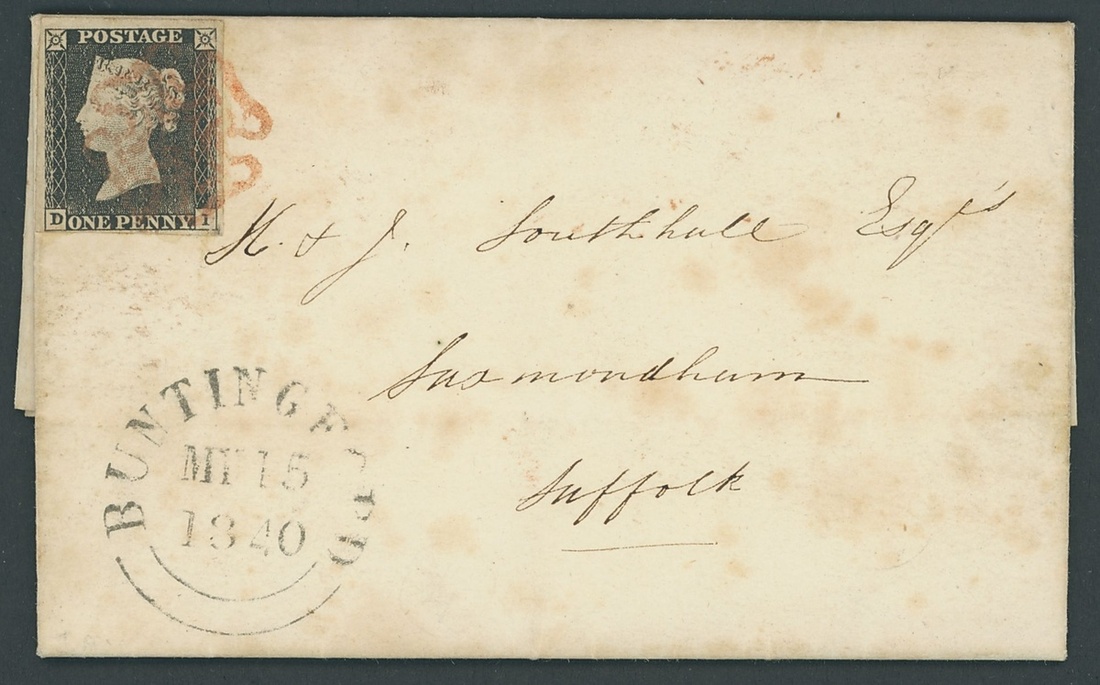 POSTAGE
D ONE PENNY I
H. & J. Southhall Esqrs
Saxmondham
Suffolk
BUNTINGFORD
MY 15
1840